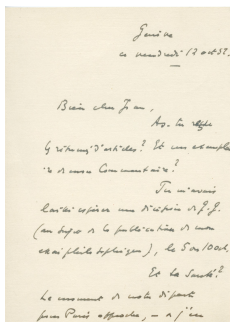 Genève
ce vendredi 12 oct 52.
Bien cher Jean,
As-tu reçu
d'articles? Et un exemplai-
re de mon Commentaire?
Tu m'avais
laissé espérer une décision de G.G.
(au sujet de la publication de mon
essai philosophique), le 5 ou 10 oct.
Et ta santé?
Le moment de notre départ
pour Paris approche,